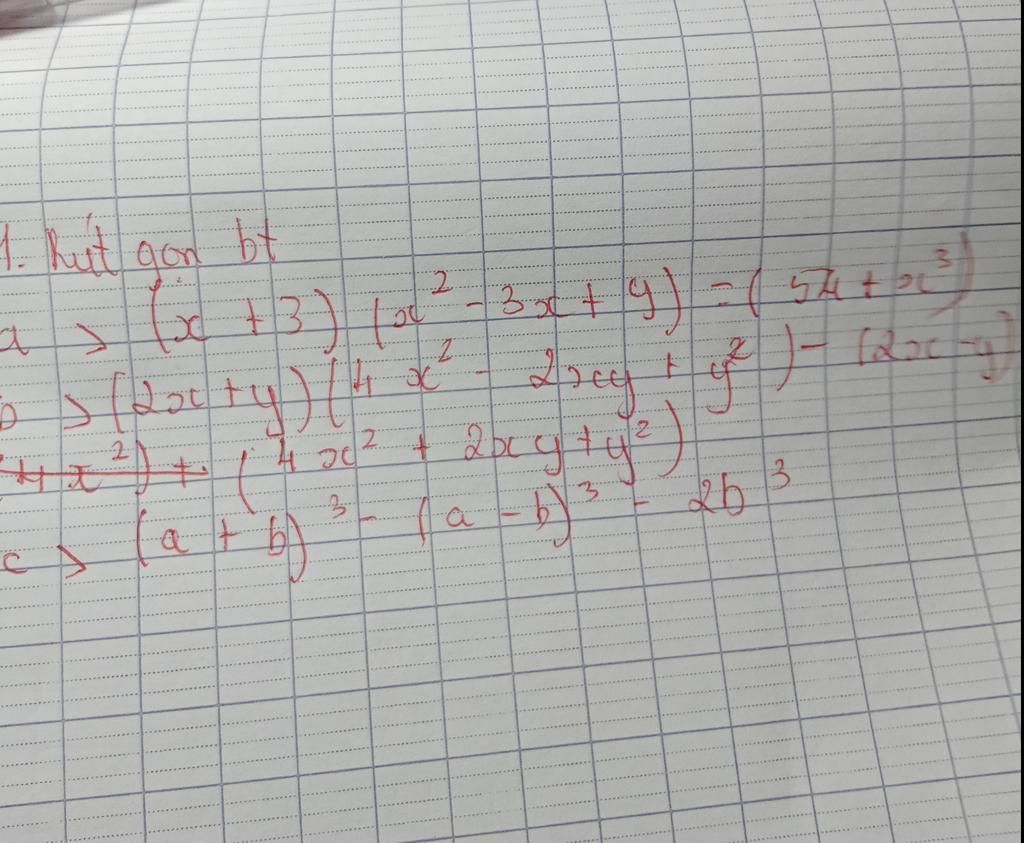 1. Rút gọn bt
a > (x + 3) (x² - 3x + y) - (54 + x³)
b > (2x + y) (4x² - 2xy + y²) - (2x - y)
(4x² + 2xy + y²)
c > (a + b)³ - (a - b)³ - 2b³